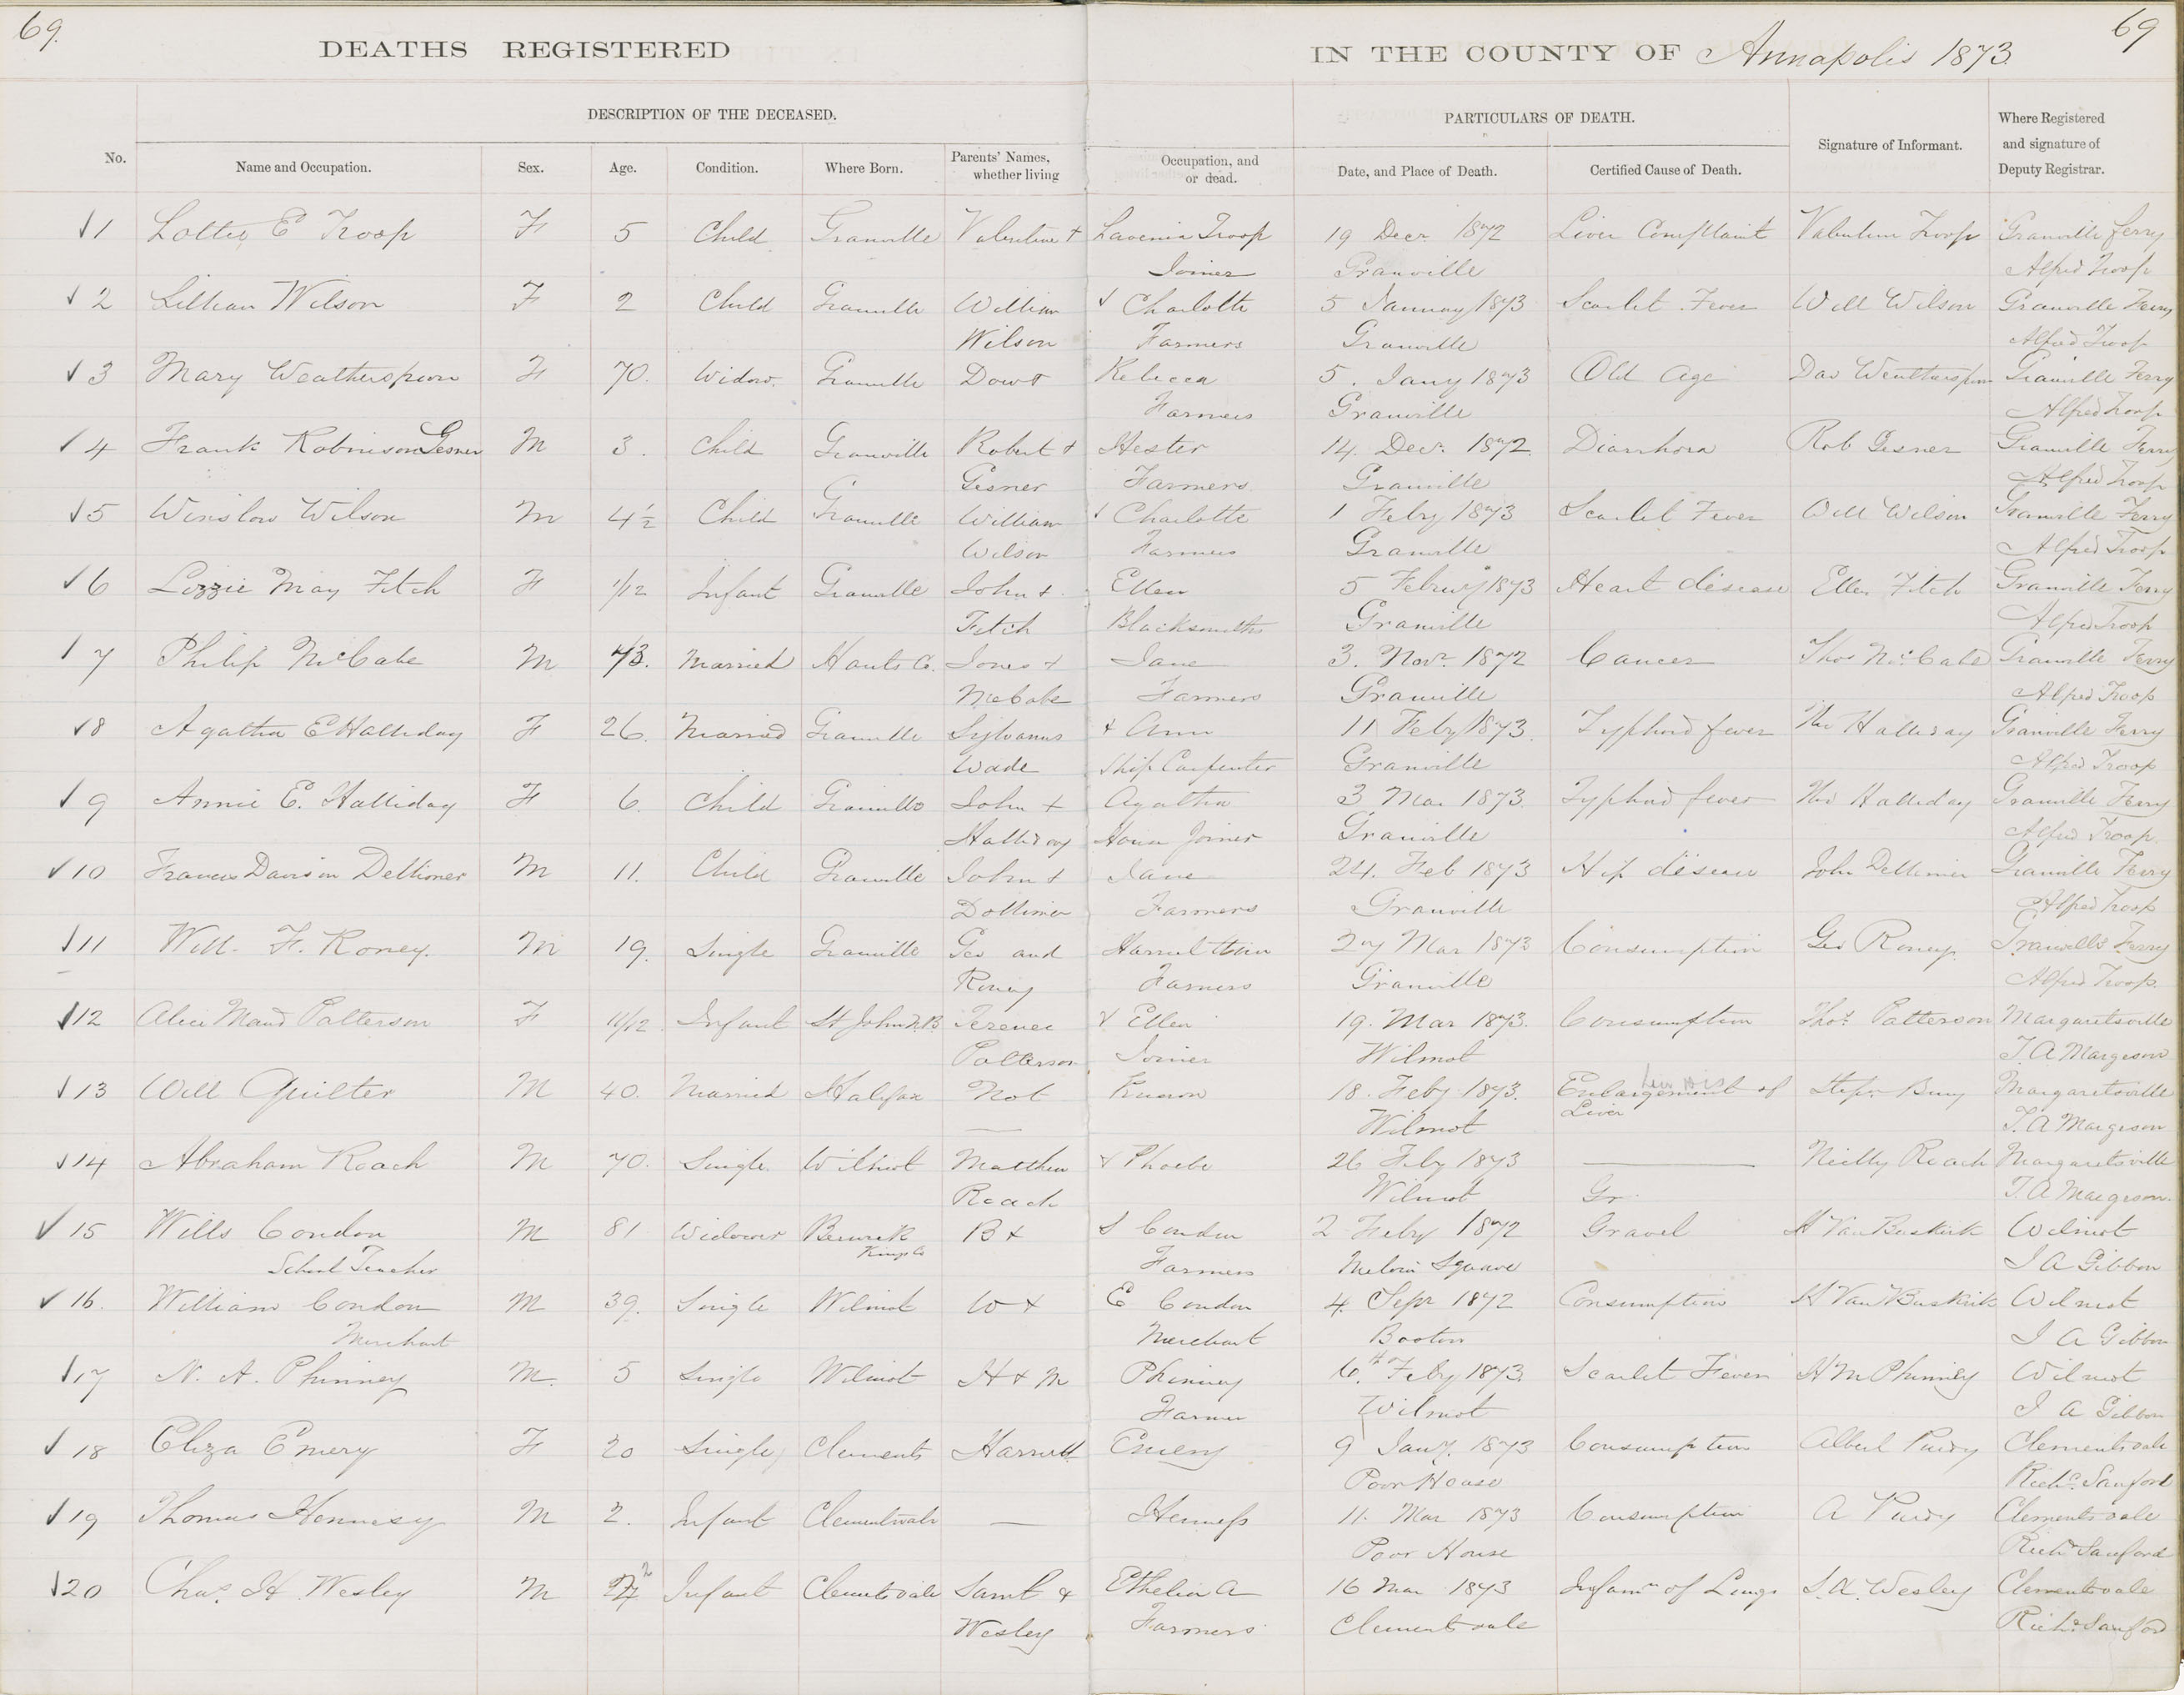 69. 69
DEATHS REGISTERED IN THE COUNTY OF Annapolis 1873.
DESCRIPTION OF THE DECEASED. PARTICULARS OF DEATH. Signature of Informant. Where Registered and signature of Deputy Registrar.
No. Name and Occupation. Sex. Age. Condition. Where Born. Parents' Names, whether living Occupation, and or dead. Date, and Place of Death. Certified Cause of Death.
√1 Lottie E Troop F 5 Child Granville Valentine + Lavenia Troop 19 Decr 1872 Liver Complaint Valentine Troop Granville Ferry
Joiner Granville Alfred Troop
√2 Lillian Wilson F 2 Child Granville William + Charlotte 5 January 1873 Scarlet Fever Will Wilson Granville Ferry
Wilson Farmers Granville Alfred Troop
√3 Mary Weatherspoon F 70. Widow. Granville Dow + Rebecca 5. Jany 1873 Old Age Dav Weatherspoon Granville Ferry
Farmers Granville Alfred Troop
√4 Frank Robinson Gesner M 3. Child Granville Robert + Hester 14. Decr. 1872. Diarrhora Rob Gesner Granville Ferry
Gesner Farmers. Granville Alfred Troop
√5 Winslow Wilson M 4½ Child Granville William + Charlotte 1 Feby 1873 Scarlet Fever Will Wilson Granville Ferry
Wilson Farmers Granville Alfred Troop
√6 Lizzie May Fitch F 1/12 Infant Granville John + Ellen 5 1873 Heart disease Ellen Fitch Granville Ferry
Fitch Blacksmiths Granville Alfred Troop
√7 Philip McCabe M 73. Married Hants Co. Jones + Jane 3. Novr. 1872 Cancer Thos McCabe Granville Ferry
McCabe Farmers Granville Alfred Troop
√8 Agatha E Halliday F 26. Married Granville Sylvanus + Ann 11 Feby 1873. Typhoid fever Halliday Granville Ferry
Wade Ship Carpenter Granville Alfred Troop
√9 Annie E. Halliday F 6. Child Granville John + Agatha 3 Mar 1873. Typhoid fever Halliday Granville Ferry
Halliday House Joiner Granville Alfred Troop.
√10 Francis Davison Deltioner M 11. Child Granville John + Jane 24. Feb 1873 Hip disease John Granville Ferry
Farmers Granville Alfred Troop
√11 Will. F. Roney. M 19. Single Granville Geo and 27 Mar 1873 Consumption Geo Roney. Granville Ferry
Roney Farmers Granville Alfred Troop.
√12 Alice Maud Patterson F 11/12 Infant St John N.B Terence + Ellen 19. Mar 1873. Consumption Thos. Patterson Margaretsville
Patterson Joiner Wilmot T. A Margeson
√13 Will Quilter M 40. Married Halifax Not Known 18. Feby 1873. Enlargement of Margaretsville
Liver
Wilmot T. A Margeson
√14 Abraham Roach M 70. Single Wilmot Matthew + Phoebe 26 Feby 1873 Neilly Roach Margaretsville
Roach Wilmot Gr. T. A Margeson.
√15 Wills Condon M 81 Widower Berwick B + S Condon 2 Feby 1872 Gravel H Van Buskirk Wilmot
School Teacher Kings Co Farmers Melvin Square I A Gibbon
√16. William Condon M 39. Single Wilmot W + E Condon 4. Sepr 1872 Consumption H Van Buskirk Wilmot
Merchant Merchant Boston I A Gibbon
√17 N. A. Phinney M. 5 Single Wilmot H + M Phinney 6th Feby 1873. Scarlet Fever H M Phinney Wilmot
Farmer Wilmot I A Gibbon
√18 Eliza Emery F 20 Single Clements Harriett Emery 9 Jany. 1873 Consumption Albert Purdy Clementsvale
Poor House Richd. Sanford
√19 Thomas Hennesy M 2. Infant Clementsvale — Henness 11. Mar 1873 Consumption A Purdy Clementsvale
Poor House Richd Sanford
√20 Chas. H. Wesley M Infant Clementsvale Saml + Ethelin A 16 Mar 1873 Infamn of Lungs S. A. Wesley Clementsvale
Wesley Farmers Clementsvale Richd Sanford